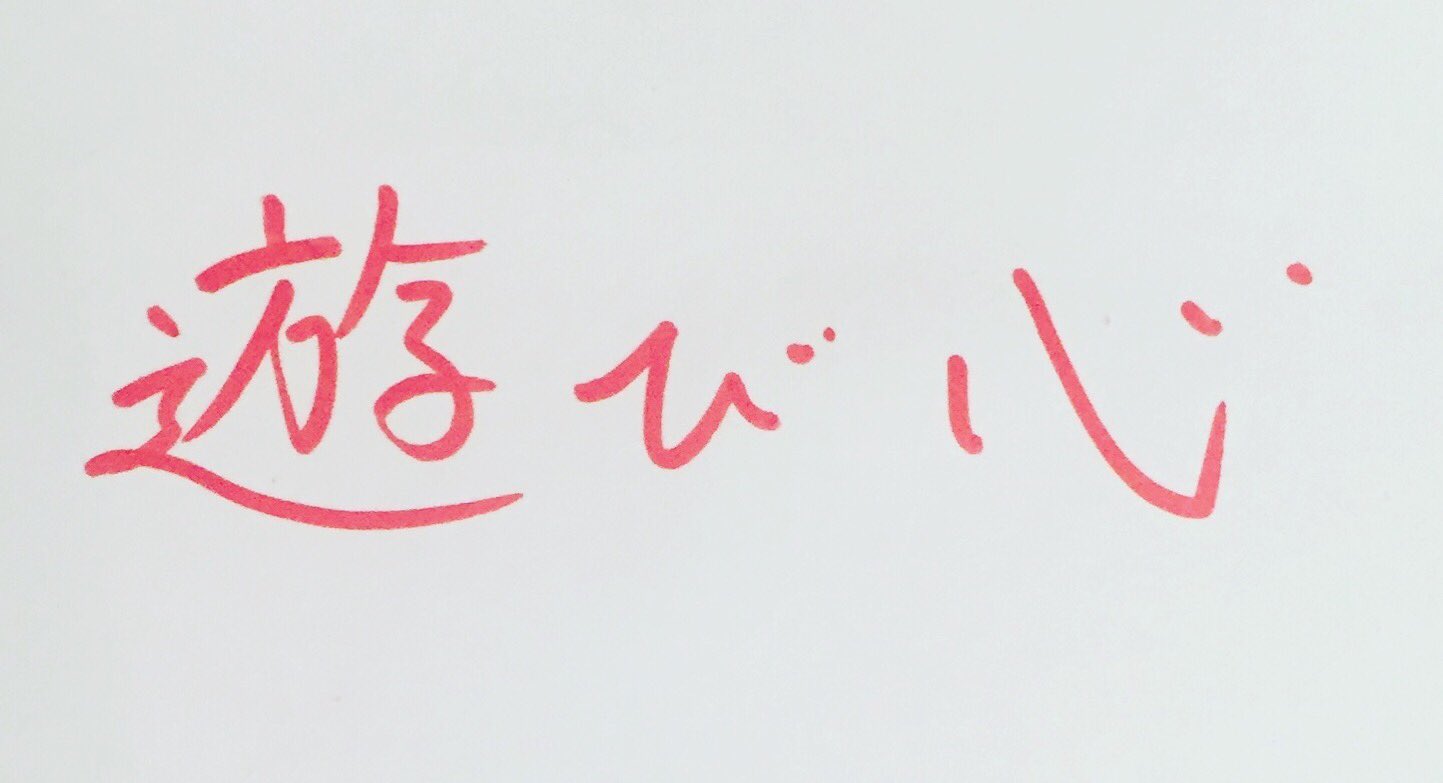 遊び心